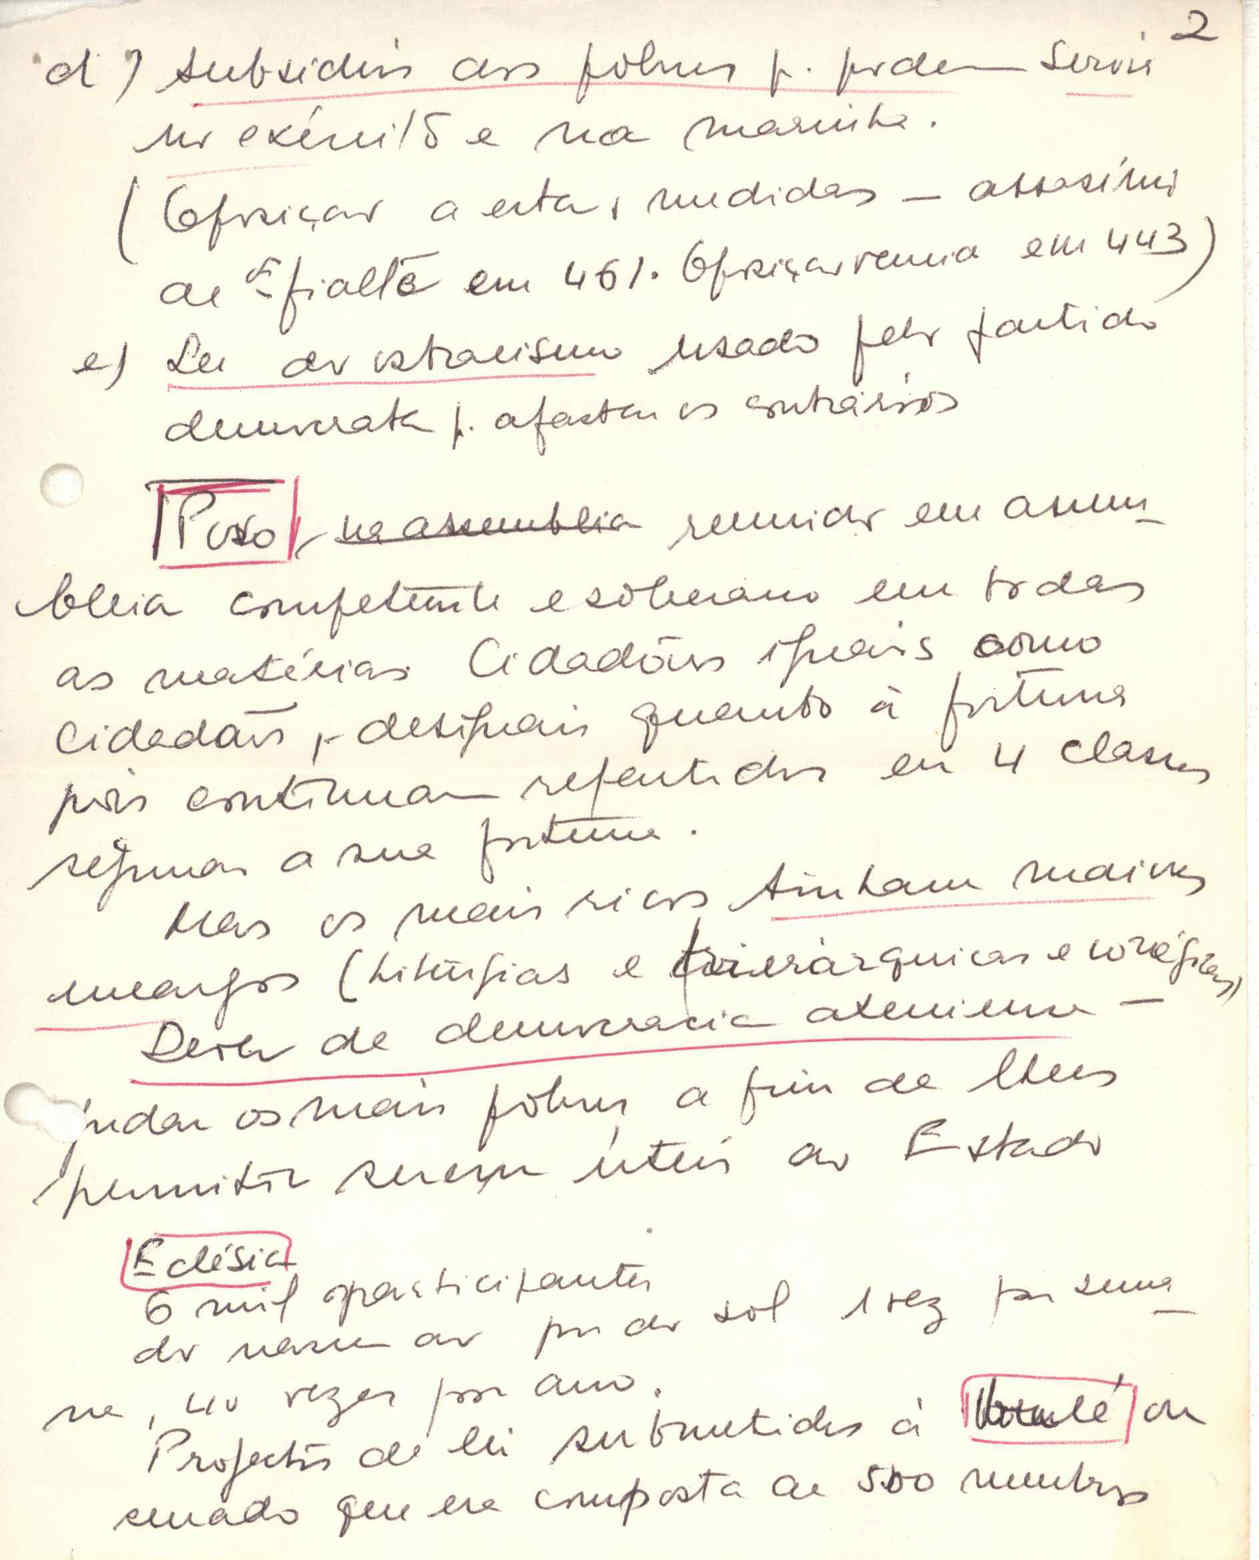 2
d) subsidios aos pobres p. poderem servir
no exército e na marinha.
(Oposição a estas medidas – assassínio
de Efialtes em 461. Oposição vencida em 443)
e) Lei do ostracismo usado pelo partido
democrata p. afastar os contrários
Povo, na assembleia reunido em assem-
bleia competente e soberano em todas
as matérias Cidadãos iguais como
cidadãos, desiguais quanto à fortuna
pois continuam repartidos em 4 classes
segundo a sua fortuna.
Mas os mais ricos tinham maiores
encargos (Liturgias e trierárquicas e corégicas)
Dever de democracia ateniense –
judar os mais pobres a fim de lhes
permitir serem úteis ao Estado
Eclésia
6 mil participantes
do nascer ao por do sol 1 vez por sema-
na, 40 vezes por ano.
Projectos de lei submetidos à boulé ou
senado que era composta de 500 membros